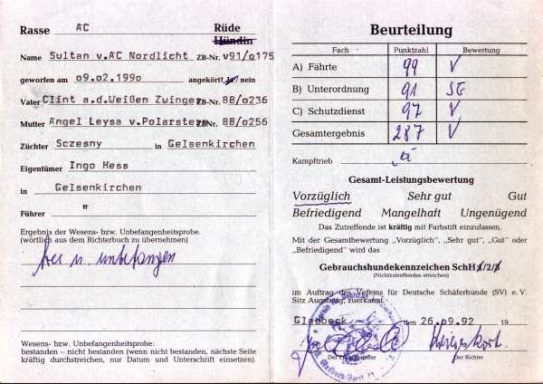 Rasse AC Rüde
Hündin
Name Sultan v.AC Nordlicht ZB-Nr. v91/o175
geworfen am o9.o2.199o angekört ja/ nein
Vater Clint a.d.Weißen Zwinge ZB-Nr. 88/o236
Mutter Angel Leysa v.Polarstern ZB-Nr. 88/o256
Züchter Sczesny in Gelsenkirchen
Eigentümer Ingo Hess
in Gelsenkirchen
Führer "
Ergebnis der Wesens- bzw. Unbefangenheitsprobe.
(wörtlich aus dem Richterbuch zu übernehmen)
frei u. unbefangen
Wesens- bzw. Unbefangenheitsprobe:
bestanden – nicht bestanden (wenn nicht bestanden, nächste Seite
kräftig durchstreichen, nur Datum und Unterschrift einsetzen).
Beurteilung
Fach Punktzahl Bewertung
A) Fährte 99 V
B) Unterordnung 91 SG
C) Schutzdienst 97 V
Gesamtergebnis 287 V
Kampftrieb
Gesamt-Leistungsbewertung
Vorzüglich Sehr gut Gut
Befriedigend Mangelhaft Ungenügend
Das Zutreffende ist kräftig mit Farbstift einzulassen.
Mit der Gesamtbewertung „Vorzüglich", „Sehr gut", „Gut" oder
„Befriedigend" wird das
Gebrauchshundekennzeichen SchH 1/2/3
(Nichtzutreffendes streichen)
im Auftrag des Vereins für Deutsche Schäferhunde (SV) e. V.
Sitz Augsburg, zuerkannt.
Gladbeck den 26.o9.92 19
Der Richter